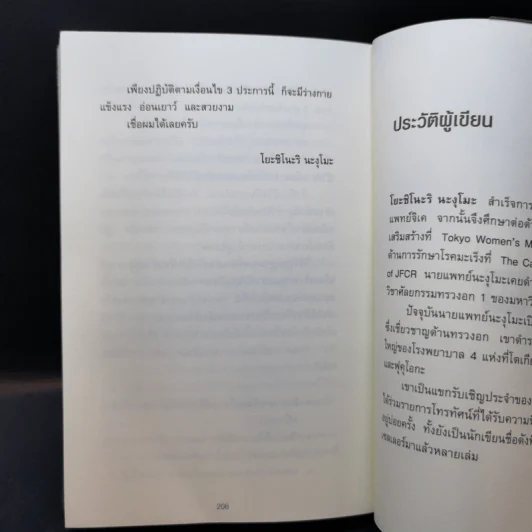 เพียงปฏิบัติตามเงื่อนไข 3 ประการนี้ ก็จะมีร่างกาย
แข็งแรง อ่อนเยาว์ และสวยงาม
เชื่อผมได้เลยครับ
โยะชิโนะริ นะงุโมะ
206
ประวัติผู้เขียน
โยะชิโนะริ นะงุโมะ สำเร็จการ
แพทย์จิเค จากนั้นจึงศึกษาต่อด้
เสริมสร้างที่ Tokyo Women's M
ด้านการรักษาโรคมะเร็งที่ The Ca
of JFCR นายแพทย์นะงุโมะเคยดำ
วิชาศัลยกรรมทรวงอก 1 ของมหาวิ
ปัจจุบันนายแพทย์นะงุโมะเป็
ซึ่งเชี่ยวชาญด้านทรวงอก เขาดำร
ใหญ่ของโรงพยาบาล 4 แห่งที่โตเกี
และฟุคุโอกะ
เขาเป็นแขกรับเชิญประจำของ
ได้ร่วมรายการโทรทัศน์ที่ได้รับความนิ
อยู่บ่อยครั้ง ทั้งยังเป็นนักเขียนชื่อดังที่
เซลเลอร์มาแล้วหลายเล่ม